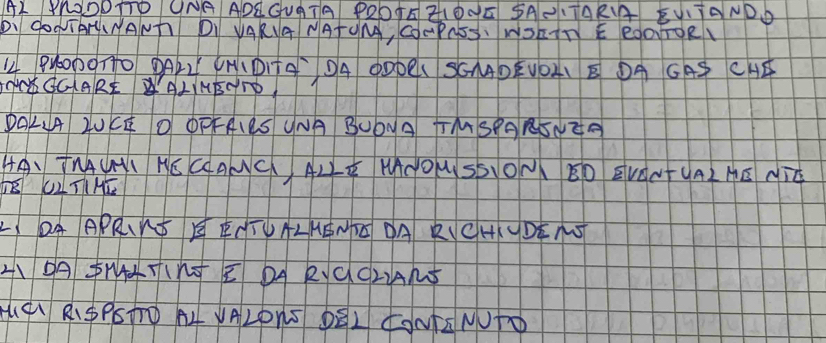 AL PRODOTTO UNA ADEGUATA PROTEZIONE SANITARIA EVITANDO
DI CONTAMINANTI DI VARIA NATURA, COMPRESI INSETTI E RODITORI
IL PRODOTTO DALL' UMIDITA', DA ODORI SGRADEVOLI E DA GAS CHE
ALIMENTO,
DALLA LUCE O OFFRIRE UNA BUONA TRASPARENZA
TRAUMI MECCANICI, ALLE MANOMISSIONI ED EVENTUALMENTE
ULTIME
DA APRIRE E ENTUALMENTE DA RICHIUDERE
DA SMALTIRE E DA RICICLIARE
RISPETTO AL VALORE DEL CONTENUTO